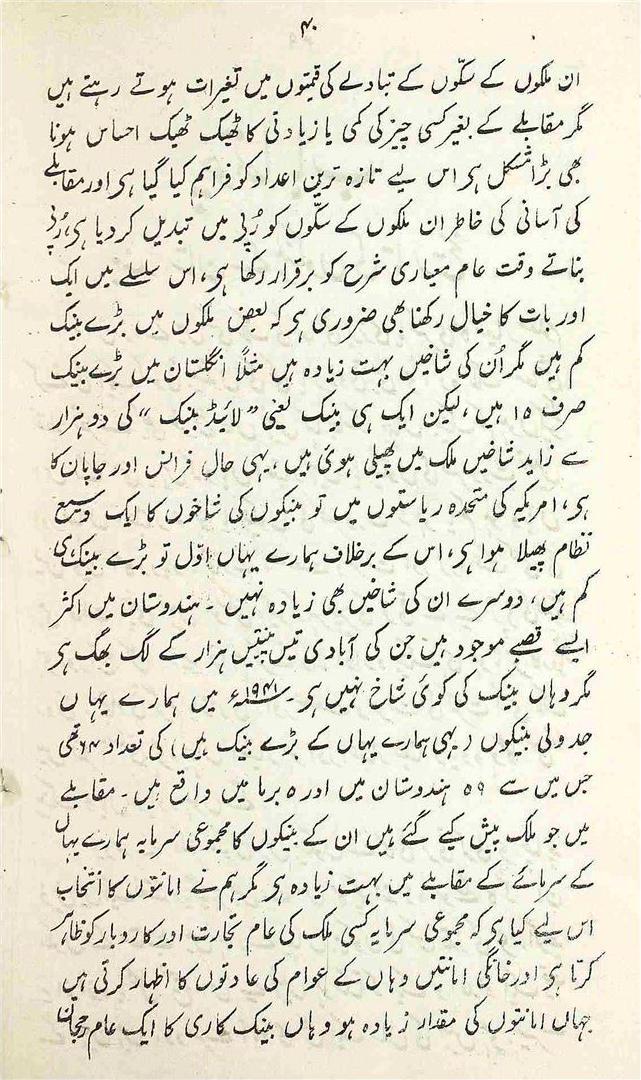 ۴۰
ان ملکوں کے سکّوں کے تبادلے کی قیمتوں میں تغیرات ہوتے رہتے ہیں
مگر مقابلے کے بغیر کسی چیز کی کمی یا زیادتی کا ٹھیک ٹھیک احساس ہونا
بھی بڑا مشکل ہی اس لیے تازہ ترین اعداد کو فراہم کیا گیا ہی اور مقابلے
کی آسانی کی خاطر ان ملکوں کے سکّوں کو رُپی میں تبدیل کر دیا ہی، رُپی
بناتے وقت عام معیاری شرح کو برقرار رکھا ہی، اس سلسلے میں ایک
اور بات کا خیال رکھنا بھی ضروری ہی کہ بعض ملکوں میں بڑے بینک
کم ہیں مگر اُن کی شاخیں بہت زیادہ ہیں مثلاً انگلستان میں بڑے بینک
صرف ۱۵ ہیں، لیکن ایک ہی بینک یعنی "لائیڈ بینک" کی دو ہزار
سے زاید شاخیں ملک میں پھیلی ہوئی ہیں، یہی حال فرانس اور جاپان کا
ہی، امریکہ کی متحدہ ریاستوں میں تو بینکوں کی شاخوں کا ایک وسیع
نظام پھیلا ہوا ہی، اس کے برخلاف ہمارے یہاں اوّل تو بڑے بینک ہی
کم ہیں، دوسرے ان کی شاخیں بھی زیادہ نہیں۔ ہندوستان میں اکثر
ایسے قصبے موجود ہیں جن کی آبادی تیس پینتیس ہزار کے لگ بھگ ہی
مگر وہاں بینک کی کوئی شاخ نہیں ہی۔ ۱۹۴۱ء میں ہمارے یہاں
جدولی بینکوں (یہی ہمارے یہاں کے بڑے بینک ہیں) کی تعداد ۶۴ تھی
جس میں سے ۵۹ ہندوستان میں اور ۵ برما میں واقع ہیں۔ مقابلے
میں جو ملک پیش کیے گئے ہیں ان کے بینکوں کا مجموعی سرمایہ ہمارے یہاں
کے سرمائے کے مقابلے میں بہت زیادہ ہی مگر ہم نے امانتوں کا انتخاب
اس لیے کیا ہی کہ مجموعی سرمایہ کسی ملک کی عام تجارت اور کاروبار کو ظاہر
کرتا ہی اور خانگی امانتیں وہاں کے عوام کی عادتوں کا اظہار کرتی ہیں
جہاں امانتوں کی مقدار زیادہ ہو وہاں بینک کاری کا ایک عام رجحان